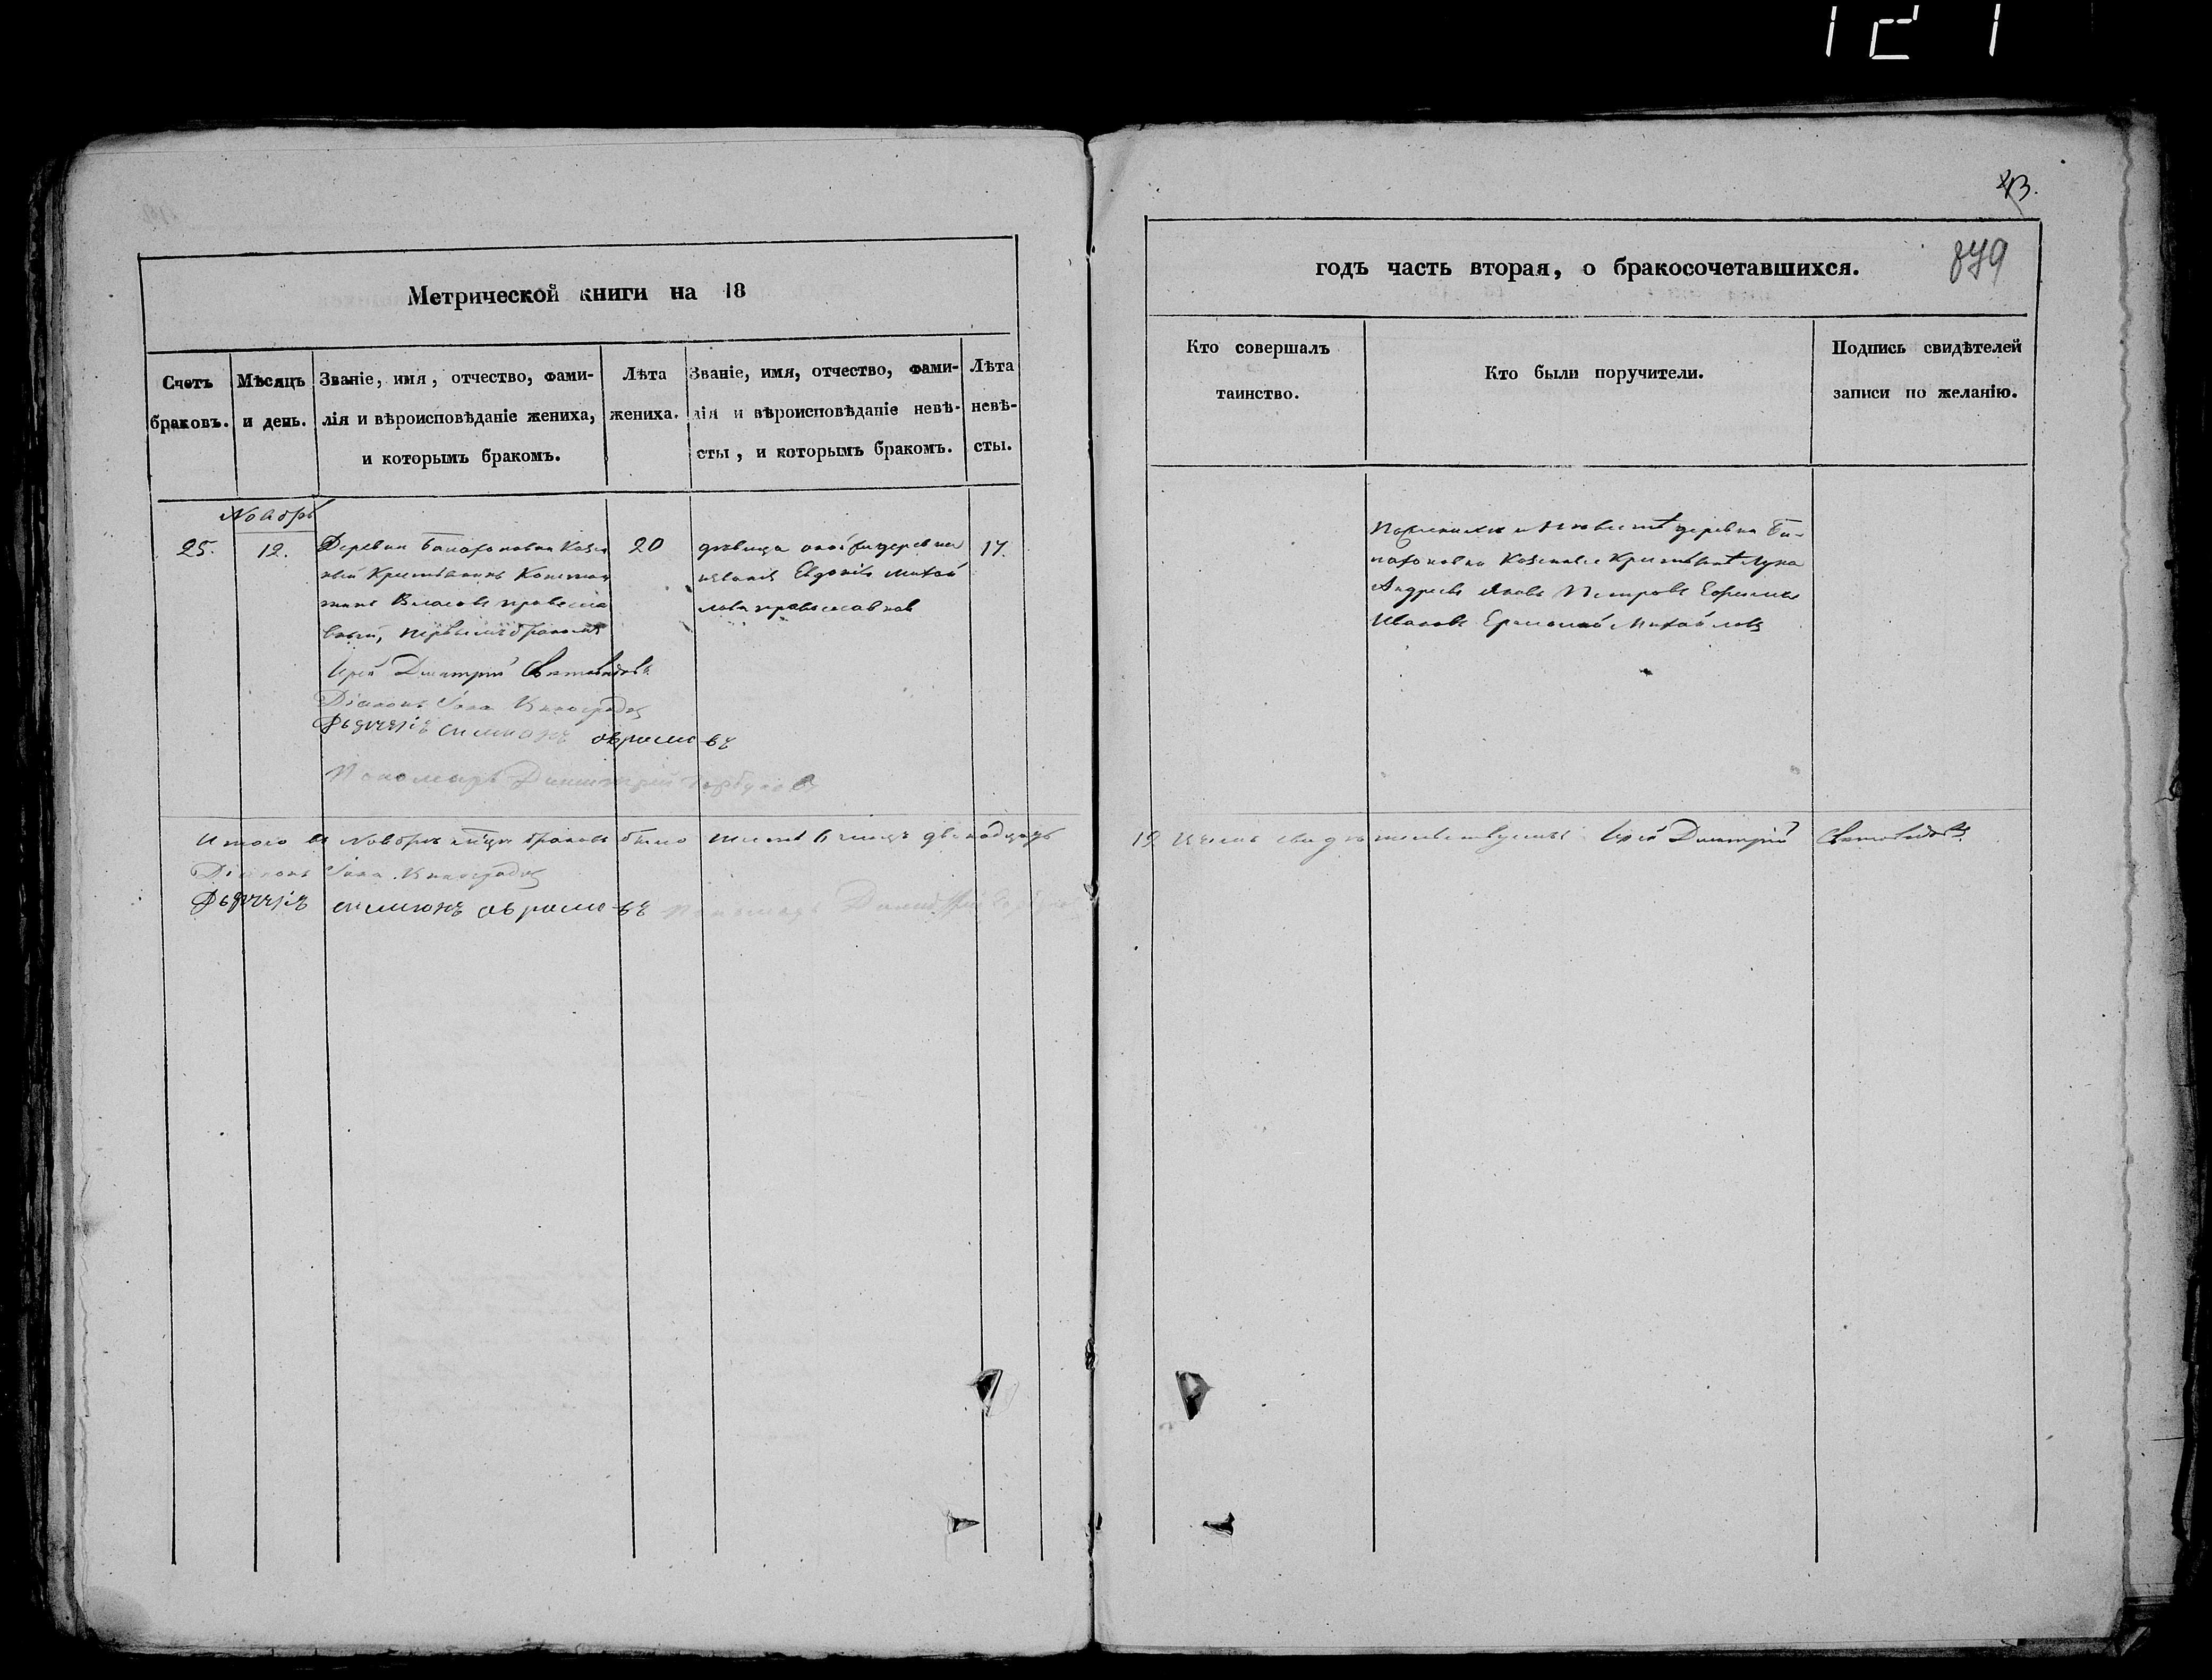 121
43.
879
Метрической книги на 18
годъ часть вторая, о бракосочетавшихся.
Счетъ браковъ.
Мѣсяцъ и день.
Званіе, имя, отчество, фами-
лія и вѣроисповѣданіе жениха,
и которымъ бракомъ.
Лѣта
жениха.
Званіе, имя, отчество, фами-
лія и вѣроисповѣданіе невѣ-
сты, и которымъ бракомъ.
Лѣта
невѣ-
сты.
Кто совершалъ
таинство.
Кто были поручители.
Подпись свидѣтелей
записи по желанію.
Ноябрь
25.
12.
Деревни Казен
ный Крестьянинъ Констан
тинъ Власовъ правосла
вный, первымъ бракомъ
20
дѣвица деревни
Евдокія Михай
лова православная
17.
Іерей Дмитрій Святовидовъ
Діаконъ Виноградовъ
Дьячекъ Симионъ Аврамовъ
Пономарь Димитрій
По женихѣ и невѣстѣ деревни
Казенные Крестьяне Лука
Андреевъ Яковъ Петровъ Ефремъ
Ивановъ Ермолай Михайловъ
Итого въ Ноябрѣ браковъ было шесть двенадцать
12 Іерей Дмитрій Святовидовъ
Діаконъ Виноградовъ
Дьячекъ Симионъ Аврамовъ Пономарь Димитрій